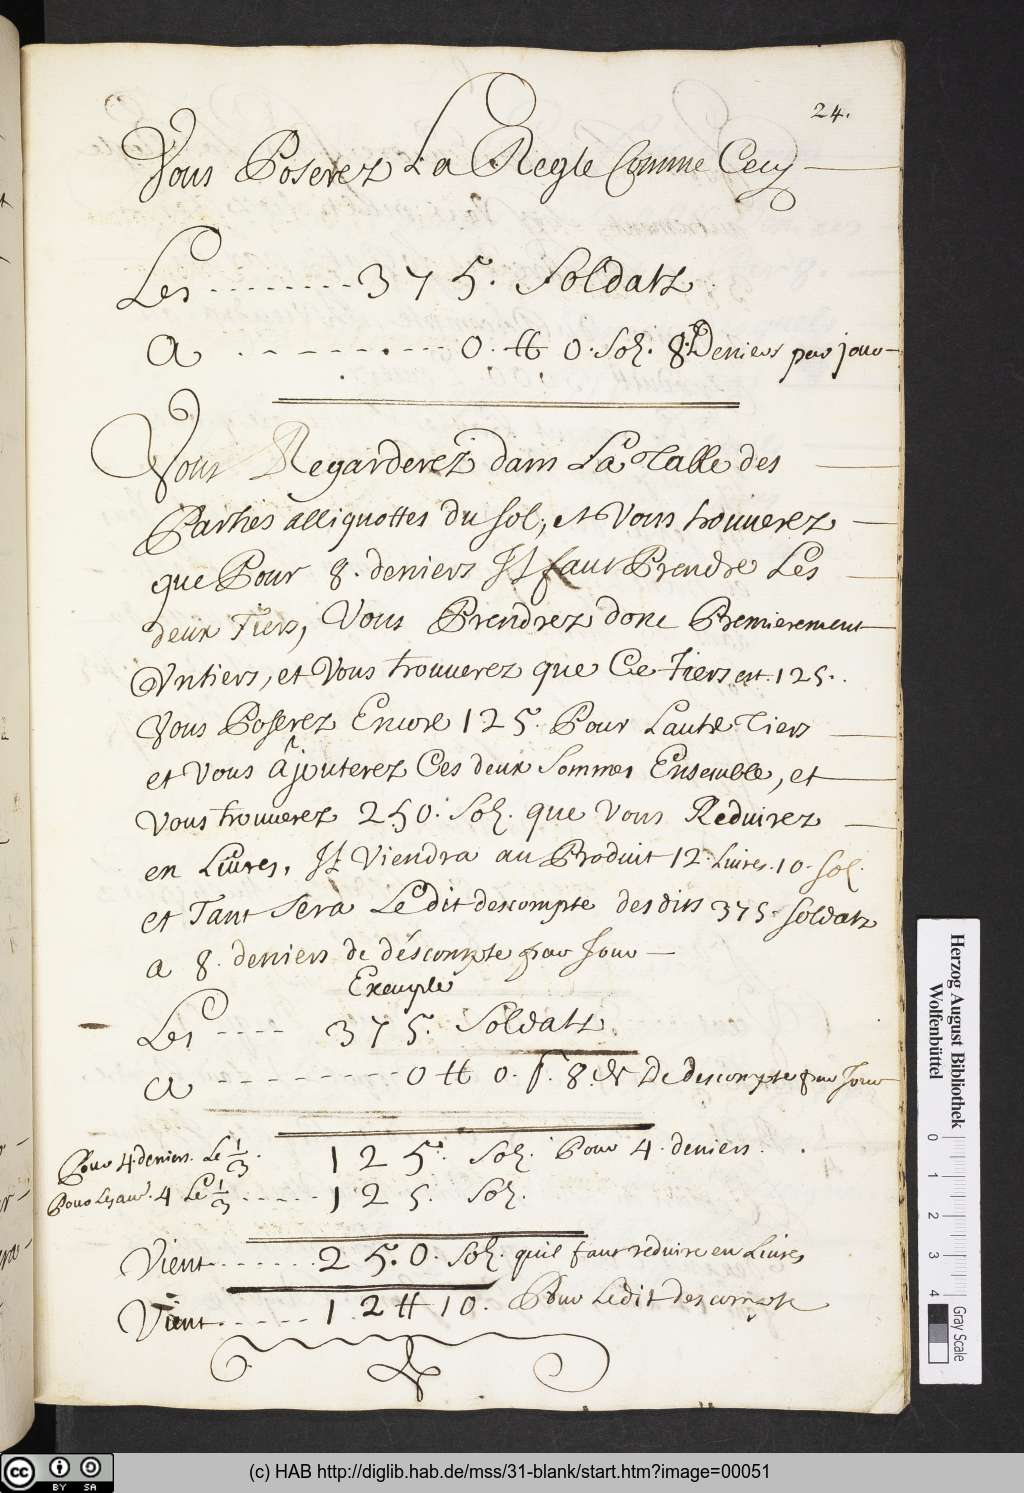 24.
Vous Poserez La Regle Comme Cecy
Les ........ 375. Soldatz
a ........ 0. ℔ 0. Solz. 8. Deniers par jour
Vous Regarderez dans La Table des
Parties alliquottes du sol, et Vous trouuerez
que Pour 8. deniers Il faut Prendre Les
deux Tiers, Vous Prendrez donc Premierement
Vntiers, et Vous trouuerez que Ce Tiers est 125.
Vous Poserez Encore 125. Pour Lautre Tiers
et Vous ajouterez Ces deux Sommes Ensemble, et
Vous trouuerez 250. Solz. que Vous Reduirez
en Liures. Il Viendra au Produit 12. Liures. 10. Sol.
et Tant Sera Le dit descompte des dits 375. Soldatz
a 8. deniers de descompte par Jour
Exemple
Les .... 375. Soldatz
a ........ 0 ℔ 0. s. 8. dr De descompte par Jour
Pour 4 deniers. Le 1/3. 125. Solz. Pour 4. deniers.
Pour Les aut. 4 Le 1/3 ..... 125. Solz.
Vient ....... 250. Solz. quil faut reduire en Liures
Vient ...... 12 ℔ 10. Pour Ledit descompte
Herzog August Bibliothek
Wolfenbüttel
0 1 2 3 4
Gray Scale
cc BY SA
(c) HAB http://diglib.hab.de/mss/31-blank/start.htm?image=00051